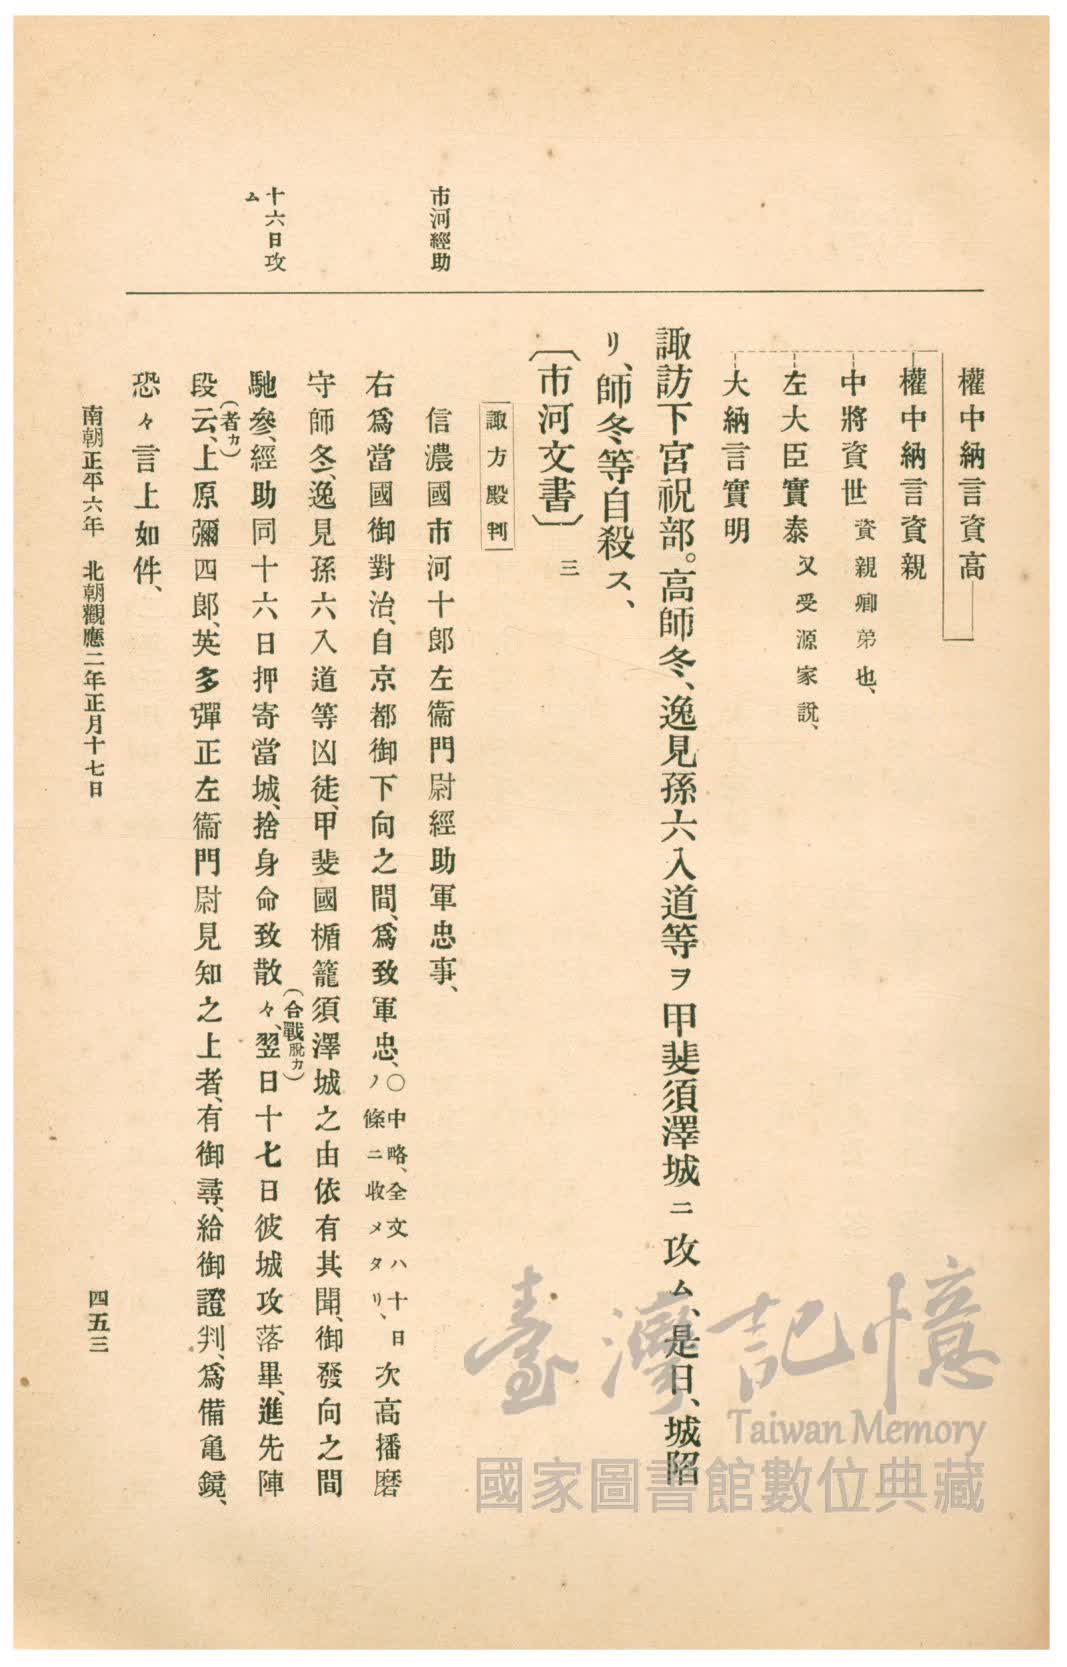 權中納言資高
權中納言資親
中將資世 資親卿弟也、
左大臣實泰 又受源家說、
大納言實明
諏訪下宮祝部。高師冬、逸見孫六入道等ヲ甲斐須澤城ニ攻ム、是日、城陷
リ、師冬等自殺ス、
〔市河文書〕三
諏方殿判
市河經助
信濃國市河十郎左衞門尉經助軍忠事、
右爲當國御對治、自京都御下向之間、爲致軍忠、○中略、全文ハ十日ノ條ニ收メタリ、次高播磨
守師冬、逸見孫六入道等凶徒、甲斐國楯籠須澤城之由依有其聞、御發向之間
十六日攻ム
馳參、經助同十六日押寄當城、捨身命致散々、(合戰脫カ)翌日十七日彼城攻落畢、進先陣
段云、(者カ)上原彌四郎、英多彈正左衞門尉見知之上者、有御尋、給御證判、爲備亀鏡、
恐々言上如件、
南朝正平六年 北朝觀應二年正月十七日
四五三
臺灣記憶
Taiwan Memory
國家圖書館數位典藏